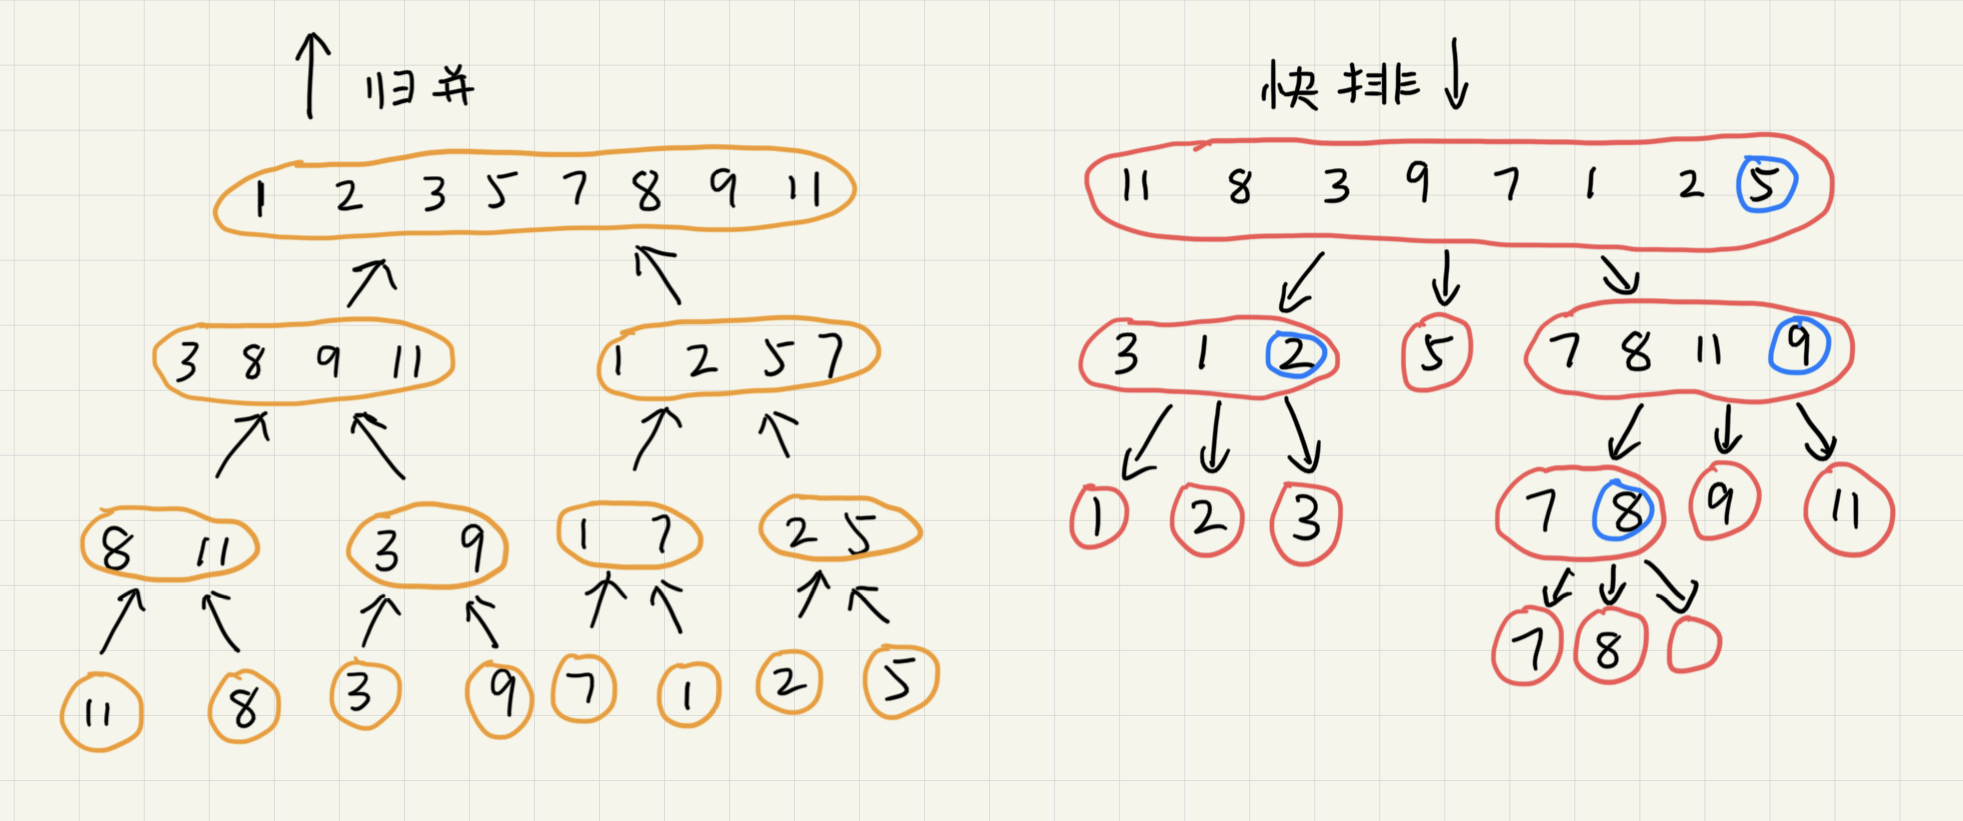 归并
1 2 3 5 7 8 9 11
3 8 9 11
1 2 5 7
8 11
3 9
1 7
2 5
11
8
3
9
7
1
2
5
快排
11 8 3 9 7 1 2 5
3 1 2
5
7 8 11 9
1
2
3
7 8
9
11
7
8